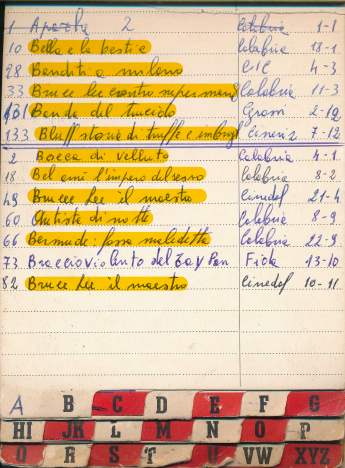 1 Apachy 2 Calabria 1-1
10 Bella e la bestia Calabria 18-1
28 Banditi a milano CIC 4-3
33 Bruce Lee contro supermang Calabria 11-3
131 Banda del trucido Grassi 2-12
133 Bluff storia di truffe e imbrogl Cineriz 7-12
2 Bocca di velluto Calabria 4-1
18 Bel ami l'impero del sesso Calabria 8-2
49 Brucee Lee il maestro Cinedef 21-4
60 Autista di notte Calabria 8-9
66 Bermude: fossa maledetta Calabria 22-9
73 Braccio violento del Tay Pan Fida 13-10
82 Bruce Lee il maestro Cinedef 10-11
A B C D E F G
HI JK L M N O P
Q R S T U VW XYZ